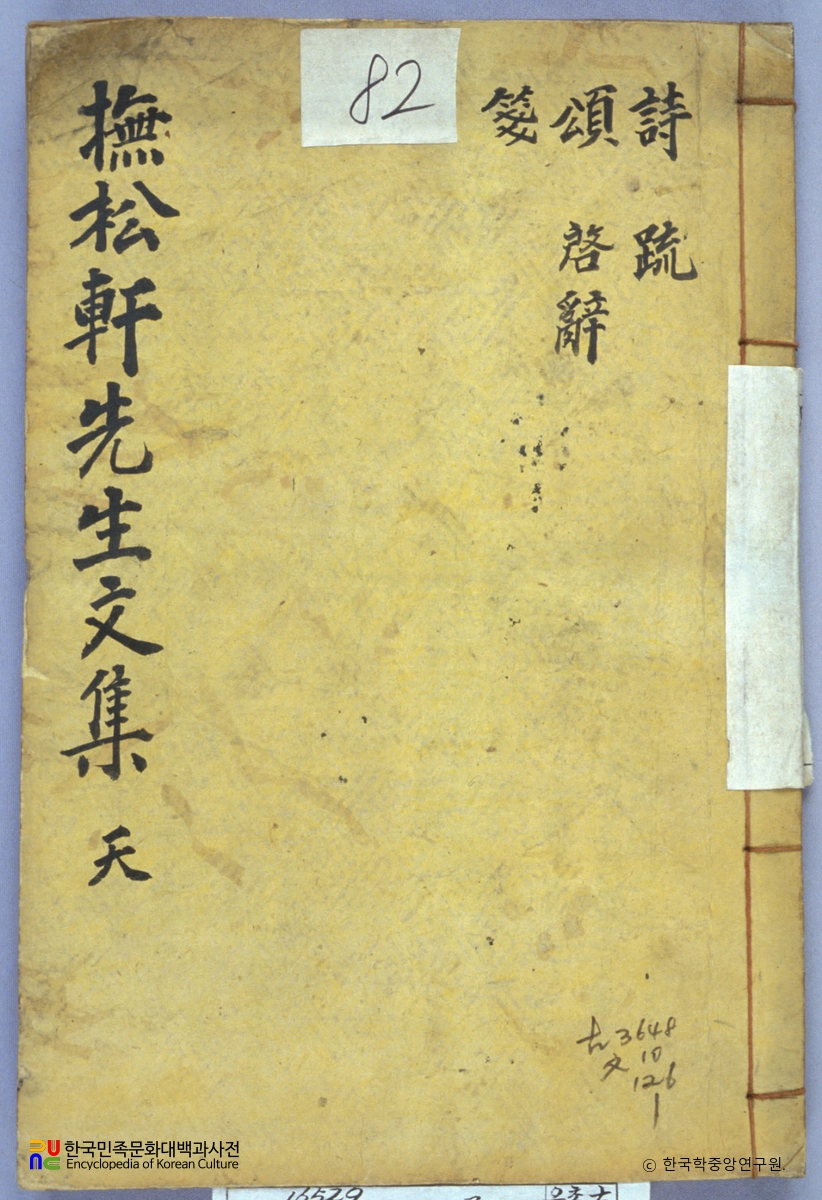 詩 疏
頌 啓辭
箋
82
撫松軒先生文集 天
古 3648
文 10
126
1
한국민족문화대백과사전
Encyclopedia of Korean Culture
© 한국학중앙연구원